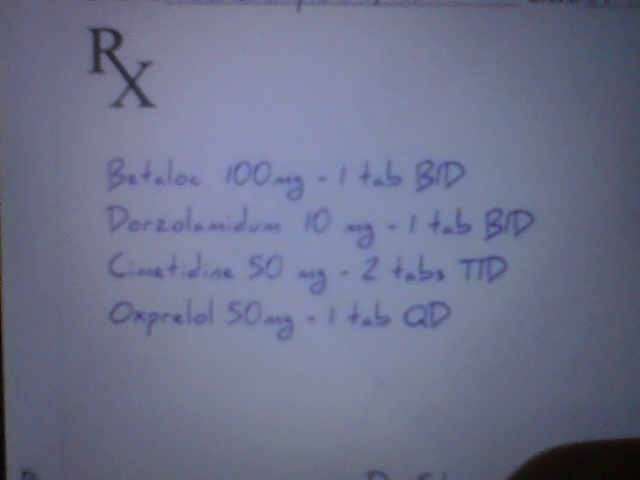 Rx
Betaloc 100mg - 1 tab BID
Dorzolamidum 10 mg - 1 tab BID
Cimetidine 50 mg - 2 tabs TID
Oxprelol 50mg - 1 tab QD